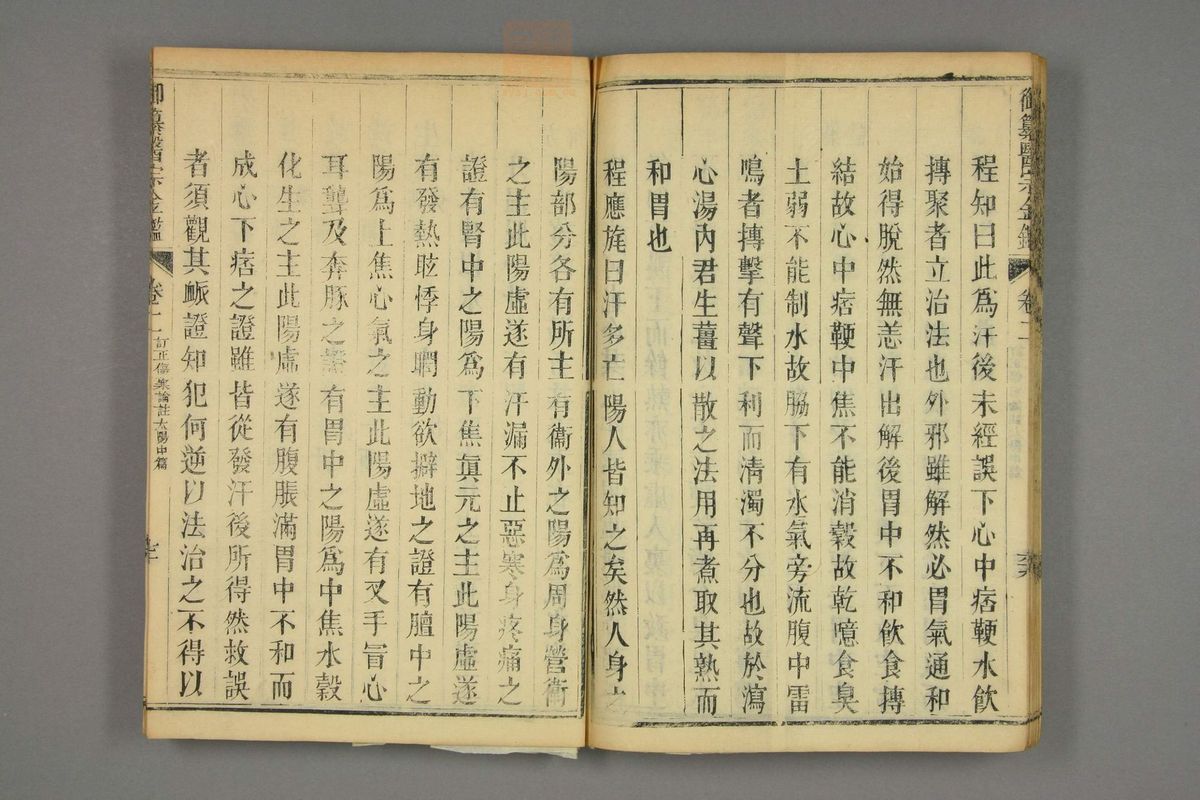 御纂醫宗金鑑 卷二 六
程知曰此爲汗後未經誤下心中痞鞕水飲
摶聚者立治法也外邪雖解然必胃氣通和
始得脫然無恙汗出解後胃中不和飲食摶
結故心中痞鞕中焦不能消穀故乾噫食臭
土弱不能制水故脇下有水氣旁流腹中雷
鳴者摶擊有聲下利而淸濁不分也故於瀉
心湯內君生薑以散之法用再煮取其熟而
和胃也
程應旄曰汗多亡陽人皆知之矣然人身之
陽部分各有所主有衞外之陽爲周身營衞
之主此陽虛遂有汗漏不止惡寒身疼痛之
證有腎中之陽爲下焦眞元之主此陽虛遂
有發熱眩悸身瞤動欲擗地之證有膻中之
陽爲上焦心氣之主此陽虛遂有叉手冒心
耳聾及奔豚之證有胃中之陽爲中焦水穀
化生之主此陽虛遂有腹脹滿胃中不和而
成心下痞之證雖皆從發汗後所得然救誤
者須觀其脈證知犯何逆以法治之不得以
御纂醫宗金鑑 卷二 訂正傷寒論註太陽中篇